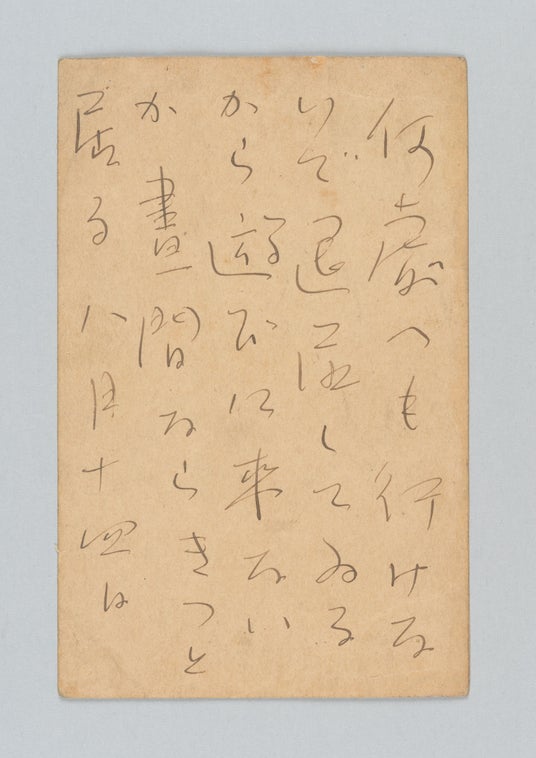 何處へも行けな
いで退屈してゐる
から遊びに来ない
か晝間ならきつと
居る 八月十四日